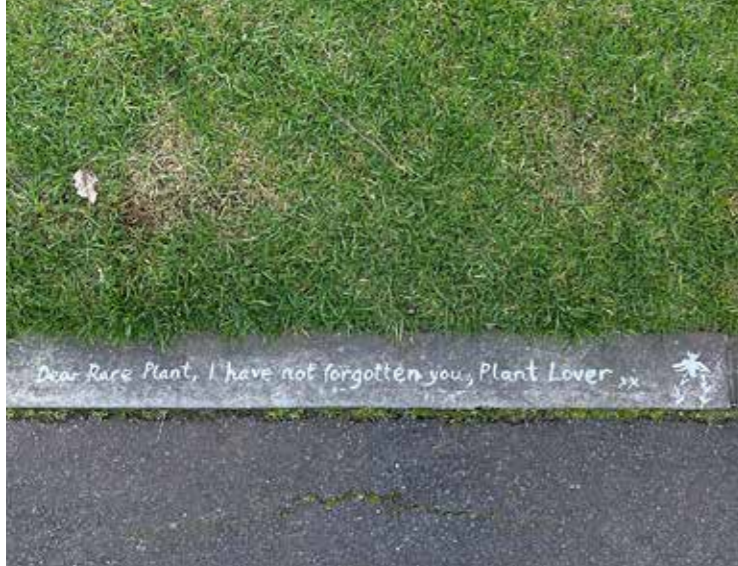 Dear Rare Plant, I have not forgotten you, Plant Lover xx